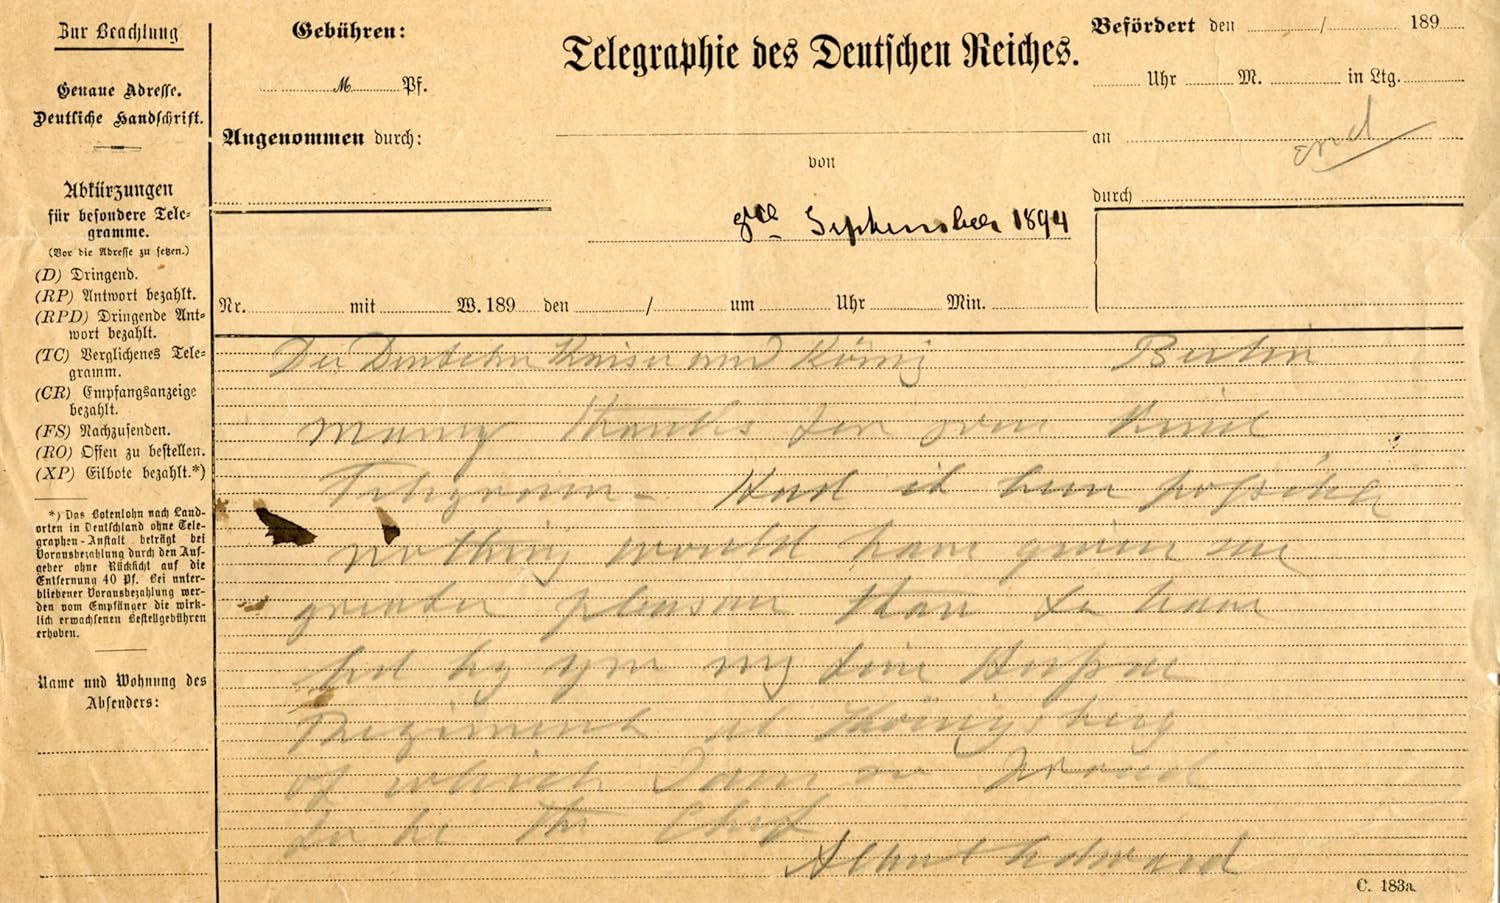 Zur Beachtung
Genaue Adresse.
Deutliche Handschrift.
Abkürzungen
für besondere Tele=
gramme.
(Vor die Adresse zu setzen.)
(D) Dringend.
(RP) Antwort bezahlt.
(RPD) Dringende Ant=
wort bezahlt.
(TC) Verglichenes Tele=
gramm.
(CR) Empfangsanzeige
bezahlt.
(FS) Nachzusenden.
(RO) Offen zu bestellen.
(XP) Eilbote bezahlt.*)
*) Das Botenlohn nach Land-
orten in Deutschland ohne Tele-
graphen-Anstalt beträgt bei
Vorausbezahlung durch den Auf-
geber ohne Rücksicht auf die
Entfernung 40 Pf. Bei unter-
bliebener Vorausbezahlung wer-
den vom Empfänger die wirk-
lich erwachsenen Bestellgebühren
erhoben.
Name und Wohnung des
Absenders:
Gebühren:
M. Pf.
Angenommen durch:
Telegraphie des Deutschen Reiches.
von
September 1894
Befördert den / 189
Uhr M. in Ltg.
an
durch
Nr. mit W. 189 den / um Uhr Min.
Kaiser und König Berlin
Many thanks for your kind
Telegram - Had it been possible
nothing would have given me
greater pleasure than to have
led by you my fine
Regiment at Königsberg
of which I am so proud
to be the Chef
Albert Edward
C. 183a.